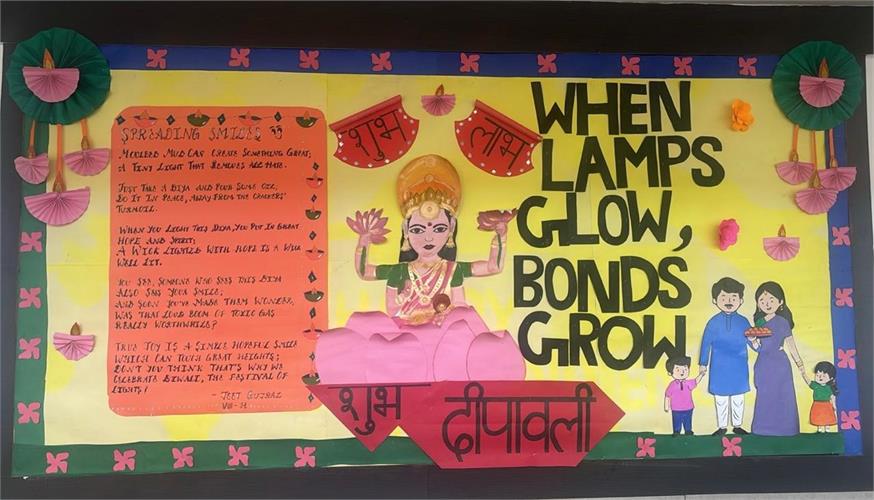 SPREADING SMILES
MOULDED MUD CAN CREATE SOMETHING GREAT;
A TINY LIGHT THAT REMOVES ALL HATE.
JUST TAKE A DIYA AND POUR SOME OIL,
DO IT IN PEACE, AWAY FROM THE CRACKERS'
TURMOIL.
WHEN YOU LIGHT THIS DIYA, YOU PUT IN GREAT
HOPE AND SPIRIT;
A WICK LIGHTED WITH HOPE IS A WICK
WELL LIT.
YOU SEE, SOMEONE WHO SEES THIS DIYA
ALSO SEES YOUR SMILE;
AND SOON YOU'VE MADE THEM WONDER,
WAS THAT LOUD BOOM OF TOXIC GAS
REALLY WORTHWHILE?
TRUE JOY IS A SIMPLE HOPEFUL SMILE
WHICH CAN TOUCH GREAT HEIGHTS;
DON'T YOU THINK THAT'S WHY WE
CELEBRATE DIWALI, THE FESTIVAL OF
LIGHTS!
- JEET GUJRAL
शुभ लाभ
WHEN
LAMPS
GLOW,
BONDS
GROW
शुभ
दीपावली